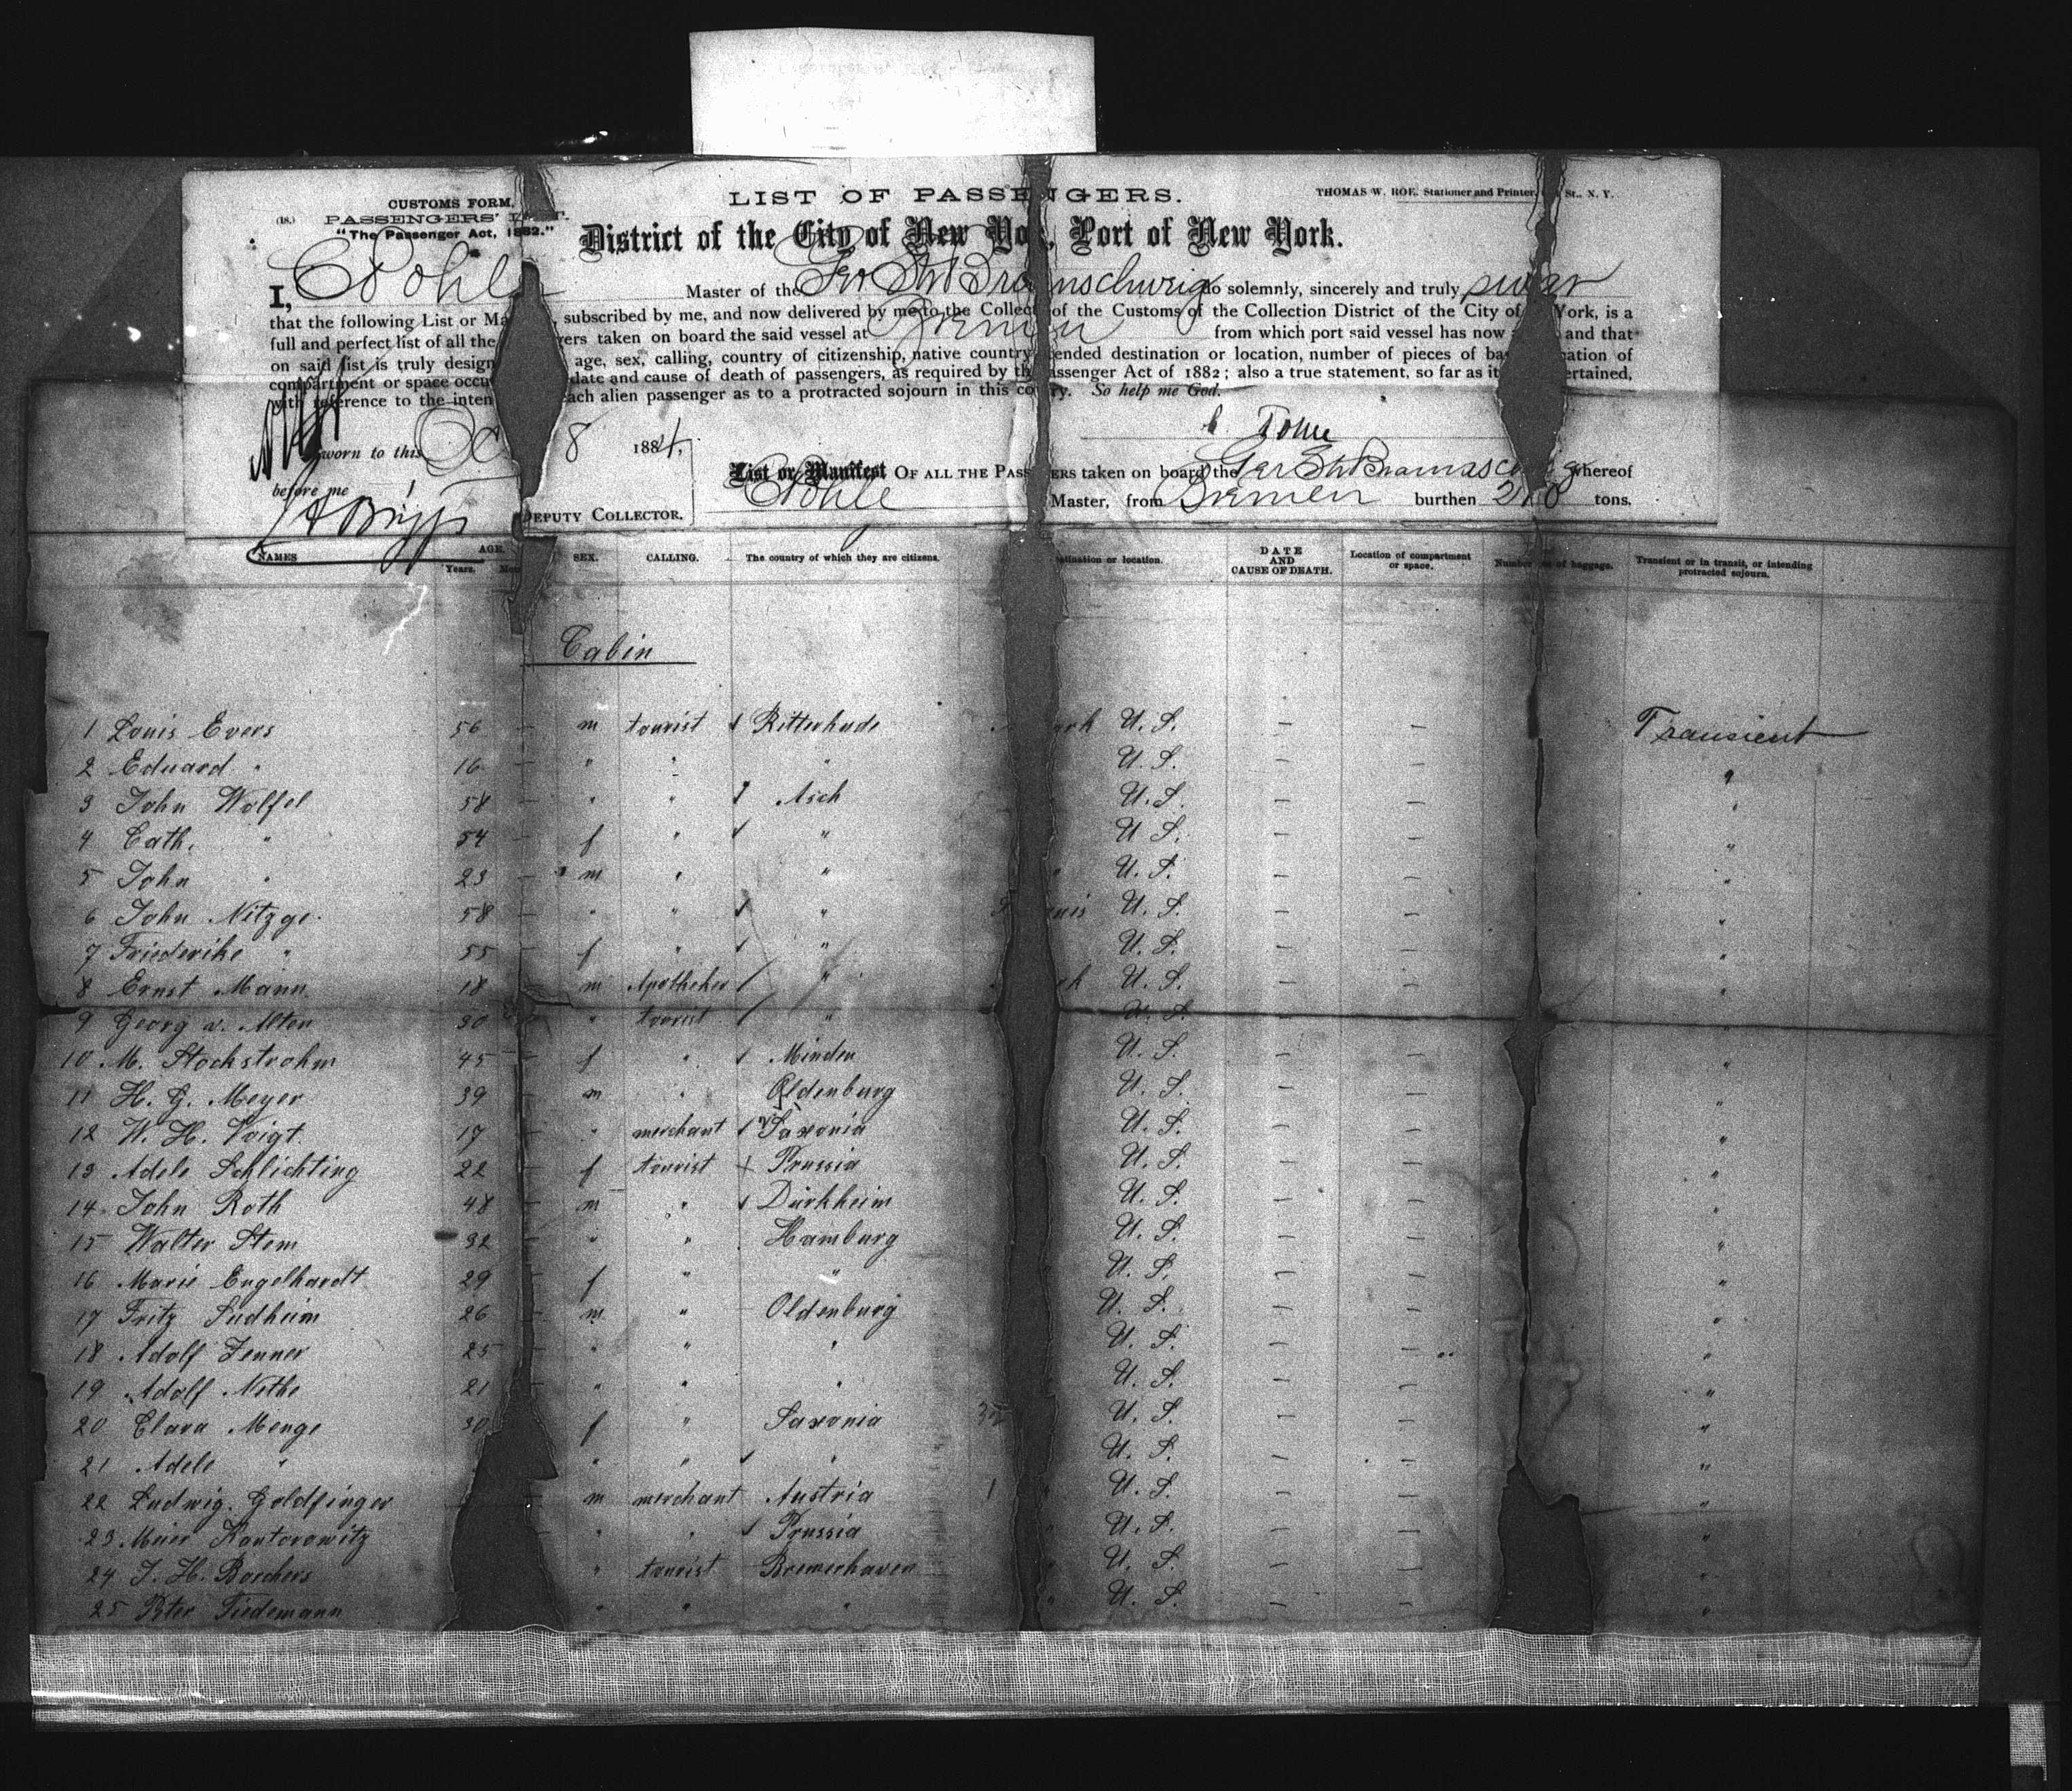 CUSTOMS FORM. LIST OF PASSENGERS. THOMAS W. ROE, Stationer and Printer, St., N. Y.
(18.) PASSENGERS' LIST.
"The Passenger Act, 1882."
District of the City of New York, Port of New York.
I, C Pohle Master of the Ger Str Braunschweig do solemnly, sincerely and truly swear
that the following List or Ma subscribed by me, and now delivered by me to the Collect of the Customs of the Collection District of the City of York, is a
full and perfect list of all the ers taken on board the said vessel at Bremen from which port said vessel has now and that
on said list is truly design age, sex, calling, country of citizenship, native country tended destination or location, number of pieces of ba ation of
compartment or space occu date and cause of death of passengers, as required by th assenger Act of 1882; also a true statement, so far as it ertained,
with reference to the inten each alien passenger as to a protracted sojourn in this co ry. So help me God.
C Pohle
Sworn to this Oc 8 1884,
before me
List or Manifest OF ALL THE PASS ERS taken on board the Ger Str Braunschweig whereof
C Pohle Master, from Bremen burthen tons.
J A Briggs DEPUTY COLLECTOR.
NAMES AGE. Years. SEX. CALLING. The country of which they are citizens. tination or location. DATE AND CAUSE OF DEATH. Location of compartment or space. Number of baggage. Transient or in transit, or intending protracted sojourn.
Cabin
1 Louis Evers 56 - m tourist Ritterhude ork U. S. - - Transient
2 Eduard " 16 - " " " U. S. - - "
3 John Wolfel 58 - " " Asch U. S. - - "
4 Cath. " 54 - f " " U. S. - - "
5 John " 23 - m " " " U. S. - - "
6 John Nitzge 58 - " " " uis U. S. - - "
7 Friederike " 55 - f " " U. S. - - "
8 Ernst Mann 18 m Apotheker " rk U. S. - - "
9 Georg v. Alten 30 " tourist " U. S. - - "
10 M. Stockstrohm 45 - f " Minden U. S. - - "
11 H. G. Meyer 39 m " Oldenburg U. S. - - "
12 W. H. Voigt 17 " merchant Saxonia U. S. - - "
13 Adele Schlichting 22 f tourist Prussia U. S. - - "
14 John Roth 48 - m " Dürkheim U. S. - - "
15 Walter Stem 32 - " " Hamburg U. S. - - "
16 Marie Engelhardt 29 - f " " U. S. - - "
17 Fritz Sudheim 26 - m " Oldenburg U. S. - - "
18 Adolf Jenner 25 - " " " U. S. - - "
19 Adolf Nethe 21 - " " " U. S. - - "
20 Clara Menge 30 f " Saxonia U. S. - - "
21 Adele " " " " U. S. - - "
22 Ludwig Goldfinger m merchant Austria " U. S. - - "
23 Meier Kantorowitz " " Prussia " U. S. - - "
24 J. H. Borchers " tourist Bremerhaven " U. S. - - "
25 Peter Tiedemann " " " " U. S. - - "